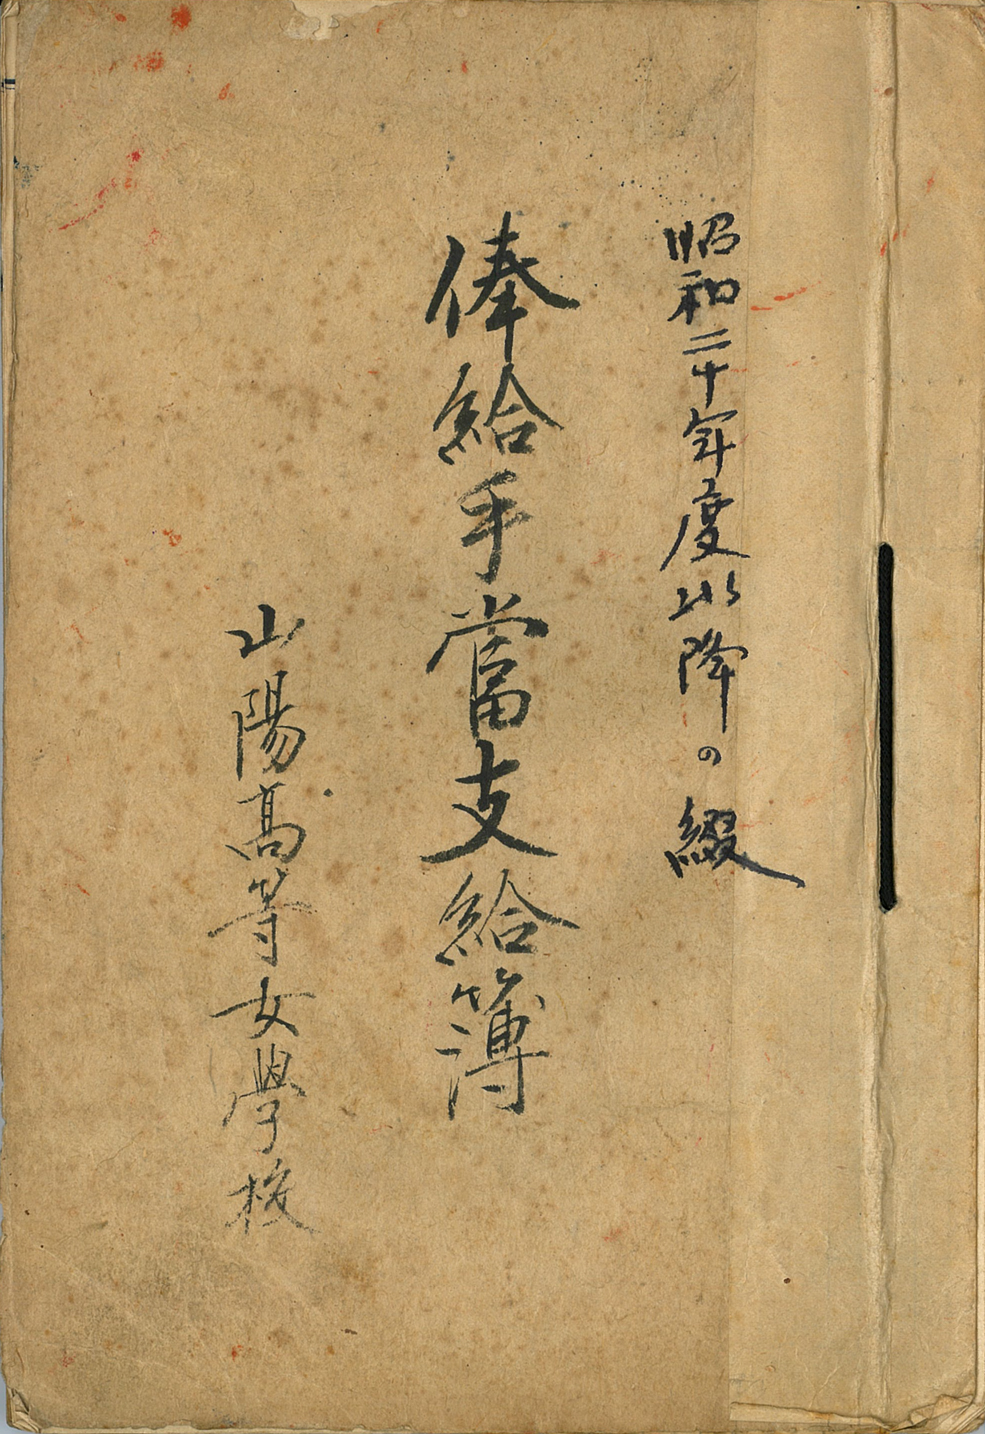 昭和二十年度以降の綴
俸給手當支給簿
山陽高等女學校